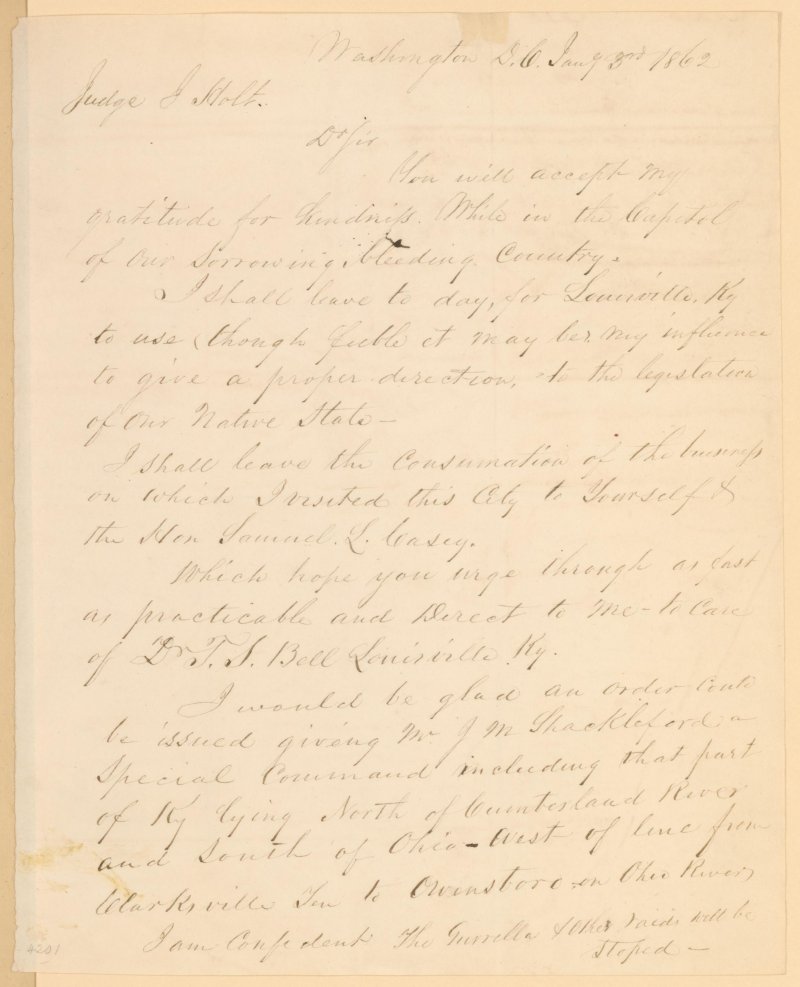 Washington D.C. Jany 3rd 1862
Judge J Holt.
Dr Sir
You will accept my
gratitude for kindness. While in the Capitol
of our sorrowing, bleeding Country.
I shall leave to day, for Louisville, Ky
to use (though feeble it may be) my influence
to give a proper direction, to the legislation
of our Native State —
I shall leave the Consumation of the business
on which I visited this City to Yourself &
the Hon Samuel. L. Casey.
Which hope you urge through as fast
as practicable and Direct to Me - to Care
of Dr T. S. Bell Louisville Ky.
I would be glad an order could
be issued giveng Mr J M Shackleford a
Special Command including that part
of Ky lying North of Cumberland River
and South of Ohio - West of line from
Clarksville Ten to Owensboro on Ohio River,
I am Confident The Gurrella & Other raids will be
Stoped —
4201